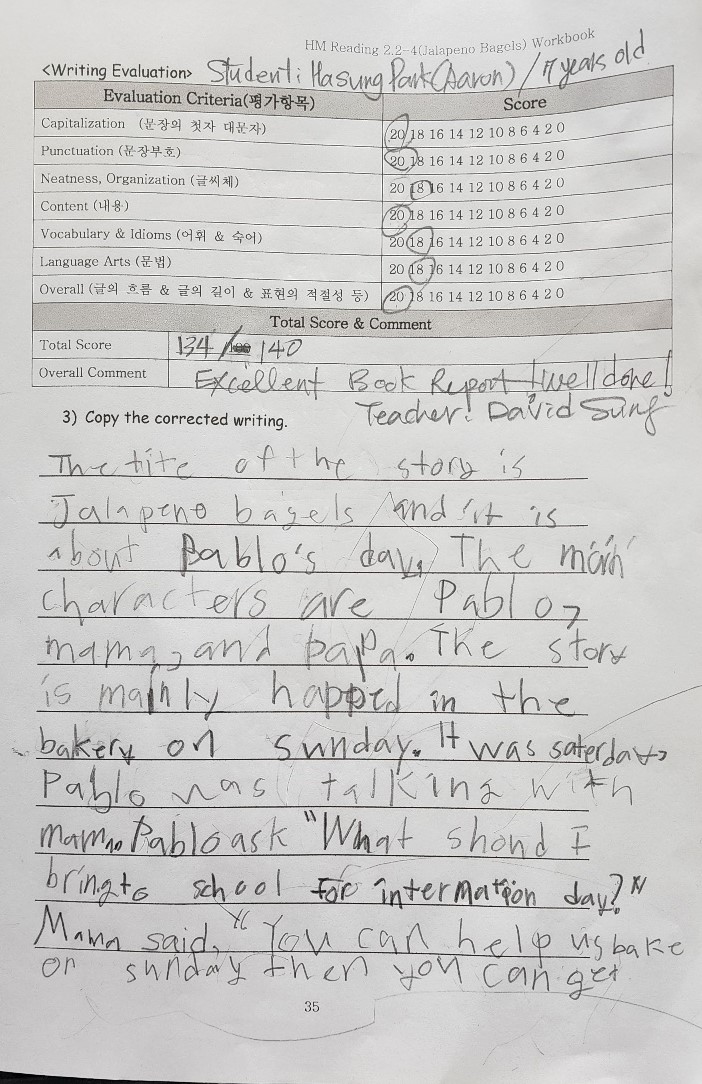 HM Reading 2.2-4(Jalapeno Bagels) Workbook
<Writing Evaluation> Student: Hasung Park(Aaron) / 7 years old
Evaluation Criteria(평가항목) Score
Capitalization (문장의 첫자 대문자) 20 18 16 14 12 10 8 6 4 2 0
Punctuation (문장부호) 20 18 16 14 12 10 8 6 4 2 0
Neatness, Organization (글씨체) 20 18 16 14 12 10 8 6 4 2 0
Content (내용) 20 18 16 14 12 10 8 6 4 2 0
Vocabulary & Idioms (어휘 & 숙어) 20 18 16 14 12 10 8 6 4 2 0
Language Arts (문법) 20 18 16 14 12 10 8 6 4 2 0
Overall (글의 흐름 & 글의 깊이 & 표현의 적절성 등) 20 18 16 14 12 10 8 6 4 2 0
Total Score & Comment
Total Score 134 / 140
Overall Comment Excellent Book Report + well done!
3) Copy the corrected writing. Teacher: David Sung
The tite of the story is
Jalapeno bagels and it is
about Pablo's day. The main
characters are Pablo,
mama, and papa. The story
is mainly happed in the
bakery on sunday. It was saterday,
Pablo was talking with
mama. Pablo ask "What shond I
bring to school for intermation day?"
Mama said, "You can help us bake
on sunday then you can get
35